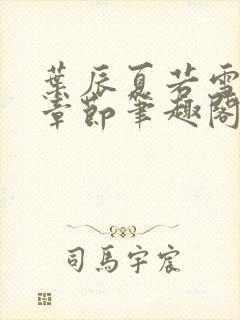 葉辰夏若雪
章節筆趣閣
司馬宇宸